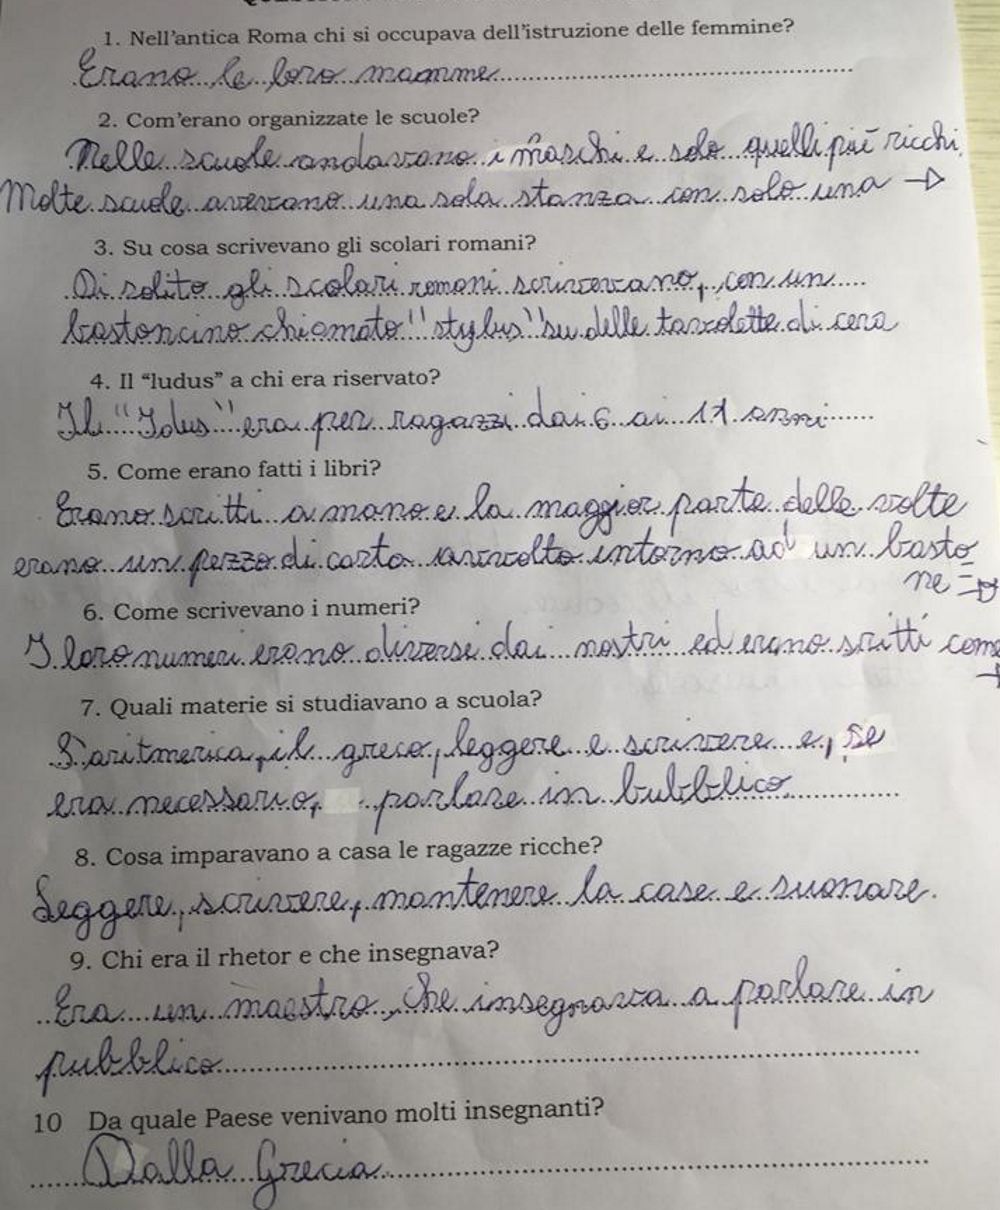 1. Nell'antica Roma chi si occupava dell'istruzione delle femmine?
Erano le loro mamme
2. Com'erano organizzate le scuole?
Nelle scuole andavano i maschi e solo quelli più ricchi.
Molte scuole avevano una sola stanza con solo una →
3. Su cosa scrivevano gli scolari romani?
Di solito gli scolari romani scrivevano, con un
bastoncino chiamato "stylus" su delle tavolette di cera
4. Il "ludus" a chi era riservato?
Il "Idus" era per ragazzi dai 6 ai 11 anni
5. Come erano fatti i libri?
Erano scritti a mano e la maggior parte delle volte
erano un pezzo di carta avvolto intorno ad un basto
ne =→
6. Come scrivevano i numeri?
I loro numeri erano diversi dai nostri ed erano scritti come
→
7. Quali materie si studiavano a scuola?
L'aritmerica, il greco, leggere e scrivere e, se
era necessario, parlare in bubblico
8. Cosa imparavano a casa le ragazze ricche?
Leggere, scrivere, mantenere la case e suonare.
9. Chi era il rhetor e che insegnava?
Era un maestro, che insegnava a parlare in
pubblico
10 Da quale Paese venivano molti insegnanti?
Dalla Grecia